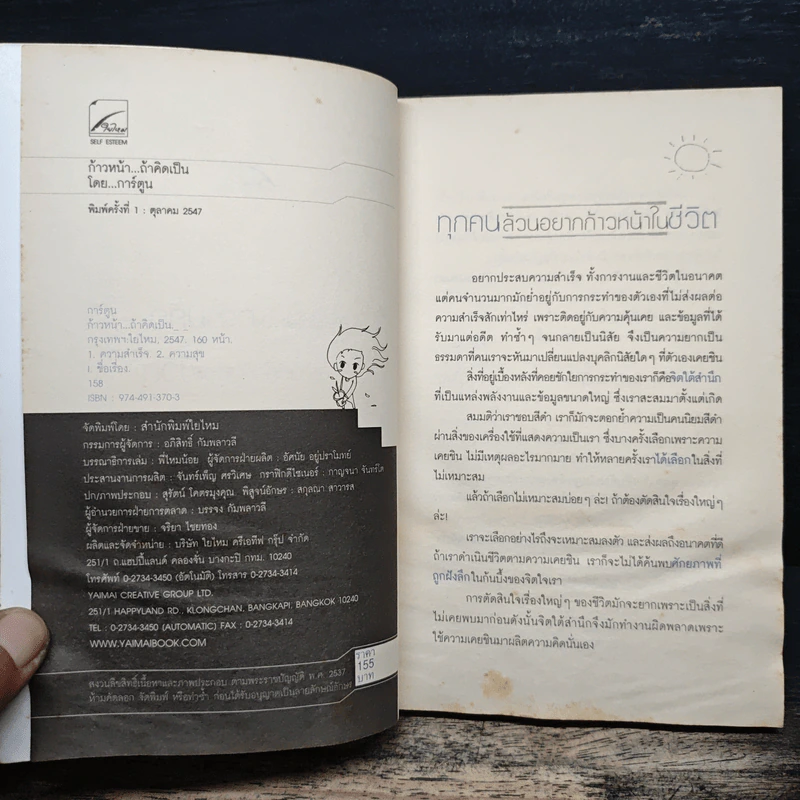 ใยไหม
SELF ESTEEM
ก้าวหน้า...ถ้าคิดเป็น
โดย...การ์ตูน
พิมพ์ครั้งที่ 1 : ตุลาคม 2547
การ์ตูน
ก้าวหน้า...ถ้าคิดเป็น
กรุงเทพฯ:ใยไหม, 2547. 160 หน้า.
1. ความสำเร็จ. 2. ความสุข
I. ชื่อเรื่อง.
158
ISBN : 974-491-370-3
จัดพิมพ์โดย : สำนักพิมพ์ใยไหม
กรรมการผู้จัดการ : อภิสิทธิ์ กัมพลาวลี
บรรณาธิการเล่ม : พี่ไหมน้อย ผู้จัดการฝ่ายผลิต : อัศนัย อยู่ปราโมทย์
ประสานงานการผลิต : จันทร์เพ็ญ ศรวิเศษ กราฟิกดีไซเนอร์ : กาญจนา จันทร์โต
ปก/ภาพประกอบ : สุรัตน์ โคตรมุงคุณ พิสูจน์อักษร : สกุลณา สาวารส
ผู้อำนวยการฝ่ายการตลาด : บรรจง กัมพลาวลี
ผู้จัดการฝ่ายขาย : จริยา ไชยทอง
ผลิตและจัดจำหน่าย : บริษัท ใยไหม ครีเอทีฟ กรุ๊ป จำกัด
251/1 ถ.แฮปปี้แลนด์ คลองจั่น บางกะปิ กทม. 10240
โทรศัพท์ 0-2734-3450 (อัตโนมัติ) โทรสาร 0-2734-3414
YAIMAI CREATIVE GROUP LTD.
251/1 HAPPYLAND RD., KLONGCHAN, BANGKAPI, BANGKOK 10240
TEL : 0-2734-3450 (AUTOMATIC) FAX : 0-2734-3414
WWW.YAIMAIBOOK.COM
ราคา
155
บาท
สงวนลิขสิทธิ์เนื้อหาและภาพประกอบ ตามพระราชบัญญัติ พ.ศ. 2537
ห้ามคัดลอก จัดพิมพ์ หรือทำซ้ำ ก่อนได้รับอนุญาตเป็นลายลักษณ์อักษร
ทุกคนล้วนอยากก้าวหน้าในชีวิต
อยากประสบความสำเร็จ ทั้งการงานและชีวิตในอนาคต
แต่คนจำนวนมากมักย่ำอยู่กับการกระทำของตัวเองที่ไม่ส่งผลต่อ
ความสำเร็จสักเท่าไหร่ เพราะติดอยู่กับความคุ้นเคย และข้อมูลที่ได้
รับมาแต่อดีต ทำซ้ำๆ จนกลายเป็นนิสัย จึงเป็นความยากเป็น
ธรรมดาที่คนเราจะหันมาเปลี่ยนแปลงบุคลิกนิสัยใดๆ ที่ตัวเองเคยชิน
สิ่งที่อยู่เบื้องหลังที่คอยชักใยการกระทำของเราก็คือจิตใต้สำนึก
ที่เป็นแหล่งพลังงานและข้อมูลขนาดใหญ่ ซึ่งเราสะสมมาตั้งแต่เกิด
สมมติว่าเราชอบสีดำ เราก็มักจะตอกย้ำความเป็นคนนิยมสีดำ
ผ่านสิ่งของเครื่องใช้ที่แสดงความเป็นเรา ซึ่งบางครั้งเลือกเพราะความ
เคยชิน ไม่มีเหตุผลอะไรมากมาย ทำให้หลายครั้งเราได้เลือกในสิ่งที่
ไม่เหมาะสม
แล้วถ้าเลือกไม่เหมาะสมบ่อยๆ ล่ะ! ถ้าต้องตัดสินใจเรื่องใหญ่ๆ
ล่ะ!
เราจะเลือกอย่างไรถึงจะเหมาะสมลงตัว และส่งผลถึงอนาคตที่ดี
ถ้าเราดำเนินชีวิตตามความเคยชิน เราก็จะไม่ได้ค้นพบศักยภาพที่
ถูกฝังลึกในก้นบึ้งของจิตใจเรา
การตัดสินใจเรื่องใหญ่ๆ ของชีวิตมักจะยากเพราะเป็นสิ่งที่
ไม่เคยพบมาก่อนดังนั้นจิตใต้สำนึกจึงมักทำงานผิดพลาดเพราะ
ใช้ความเคยชินมาผลิตความคิดนั่นเอง